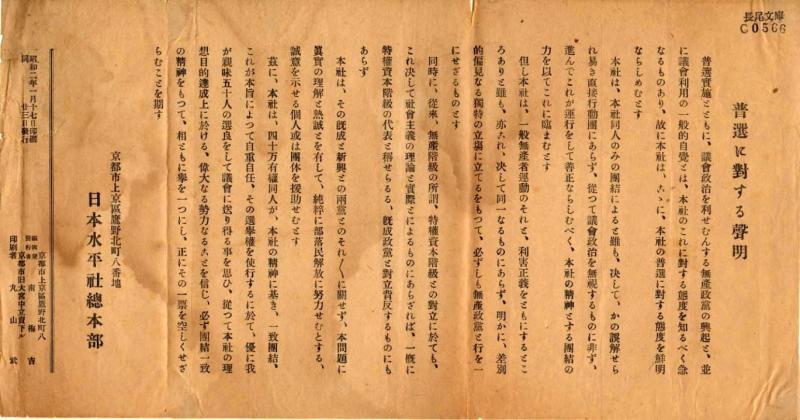 長尾文庫
C0566
普選に對する聲明
普選實施とともに、議會政治を利せむんする無產政黨の興起と、並
に議會利用の一般的自覺とは、本社のこれに對する態度を知るべく急
なるものあり、故に本社は、こゝに、本社の普選に對する態度を鮮明
ならしめむとす
本社は、本社同人のみの團結によると雖も、決して、かの誤解せら
れ易き直接行動團にあらず、從つて議會政治を無視するものに非ず、
進んでこれが運行をして善正ならしむべく、本社の精神とする團結の
力を以てこれに臨まむとす
但し本社は、一般無產者運動のそれと、利害正義をともにするとこ
ろありと雖も、亦これ、決して同一なるものにあらず、明かに、差別
的偏見なる獨特の立場に立てるをもつて、必ずしも無產政黨と行を一
にせざるものとす
同時に、從來、無產階級の所謂、特權資本階級との對立に於ても、
これ決して社會主義の理論と實際とによるものにあらざれば、一槪に
特權資本階級の代表と稱せらるる、旣成政黨と對立背反するものにも
あらず
本社は、その旣成と新興との兩黨とのそれ〴〵に關せず、本問題に
眞實の理解と熱誠とを有して、純粹に部落民解放に努力せむとする、
誠意を示せる個人或は團体を援助せむとす
茲に、本社は、四十万有權同人が、本社の精神に基き、一致團結、
これが本旨によつて自重自任、その選擧權を使行するに於て、優に我
が親味五十人の選良をして議會に送り得る事を思ひ、從つて本社の理
想目的達成上に於ける、偉大なる勢力なることを信じ、必ず團結一致
の精神をもつて、相ともに擧を一つにし、正にその一票を空しくせざ
らむことを期す
京都市上京區鷹野北町八番地
日本水平社總本部
昭和二年一月十七日印刷
同 廿三日發行
京都市上京區鷹野北町八
編輯兼發行者 南梅吉
京都市旧大宮中立賣下ル
印刷者 丸山武